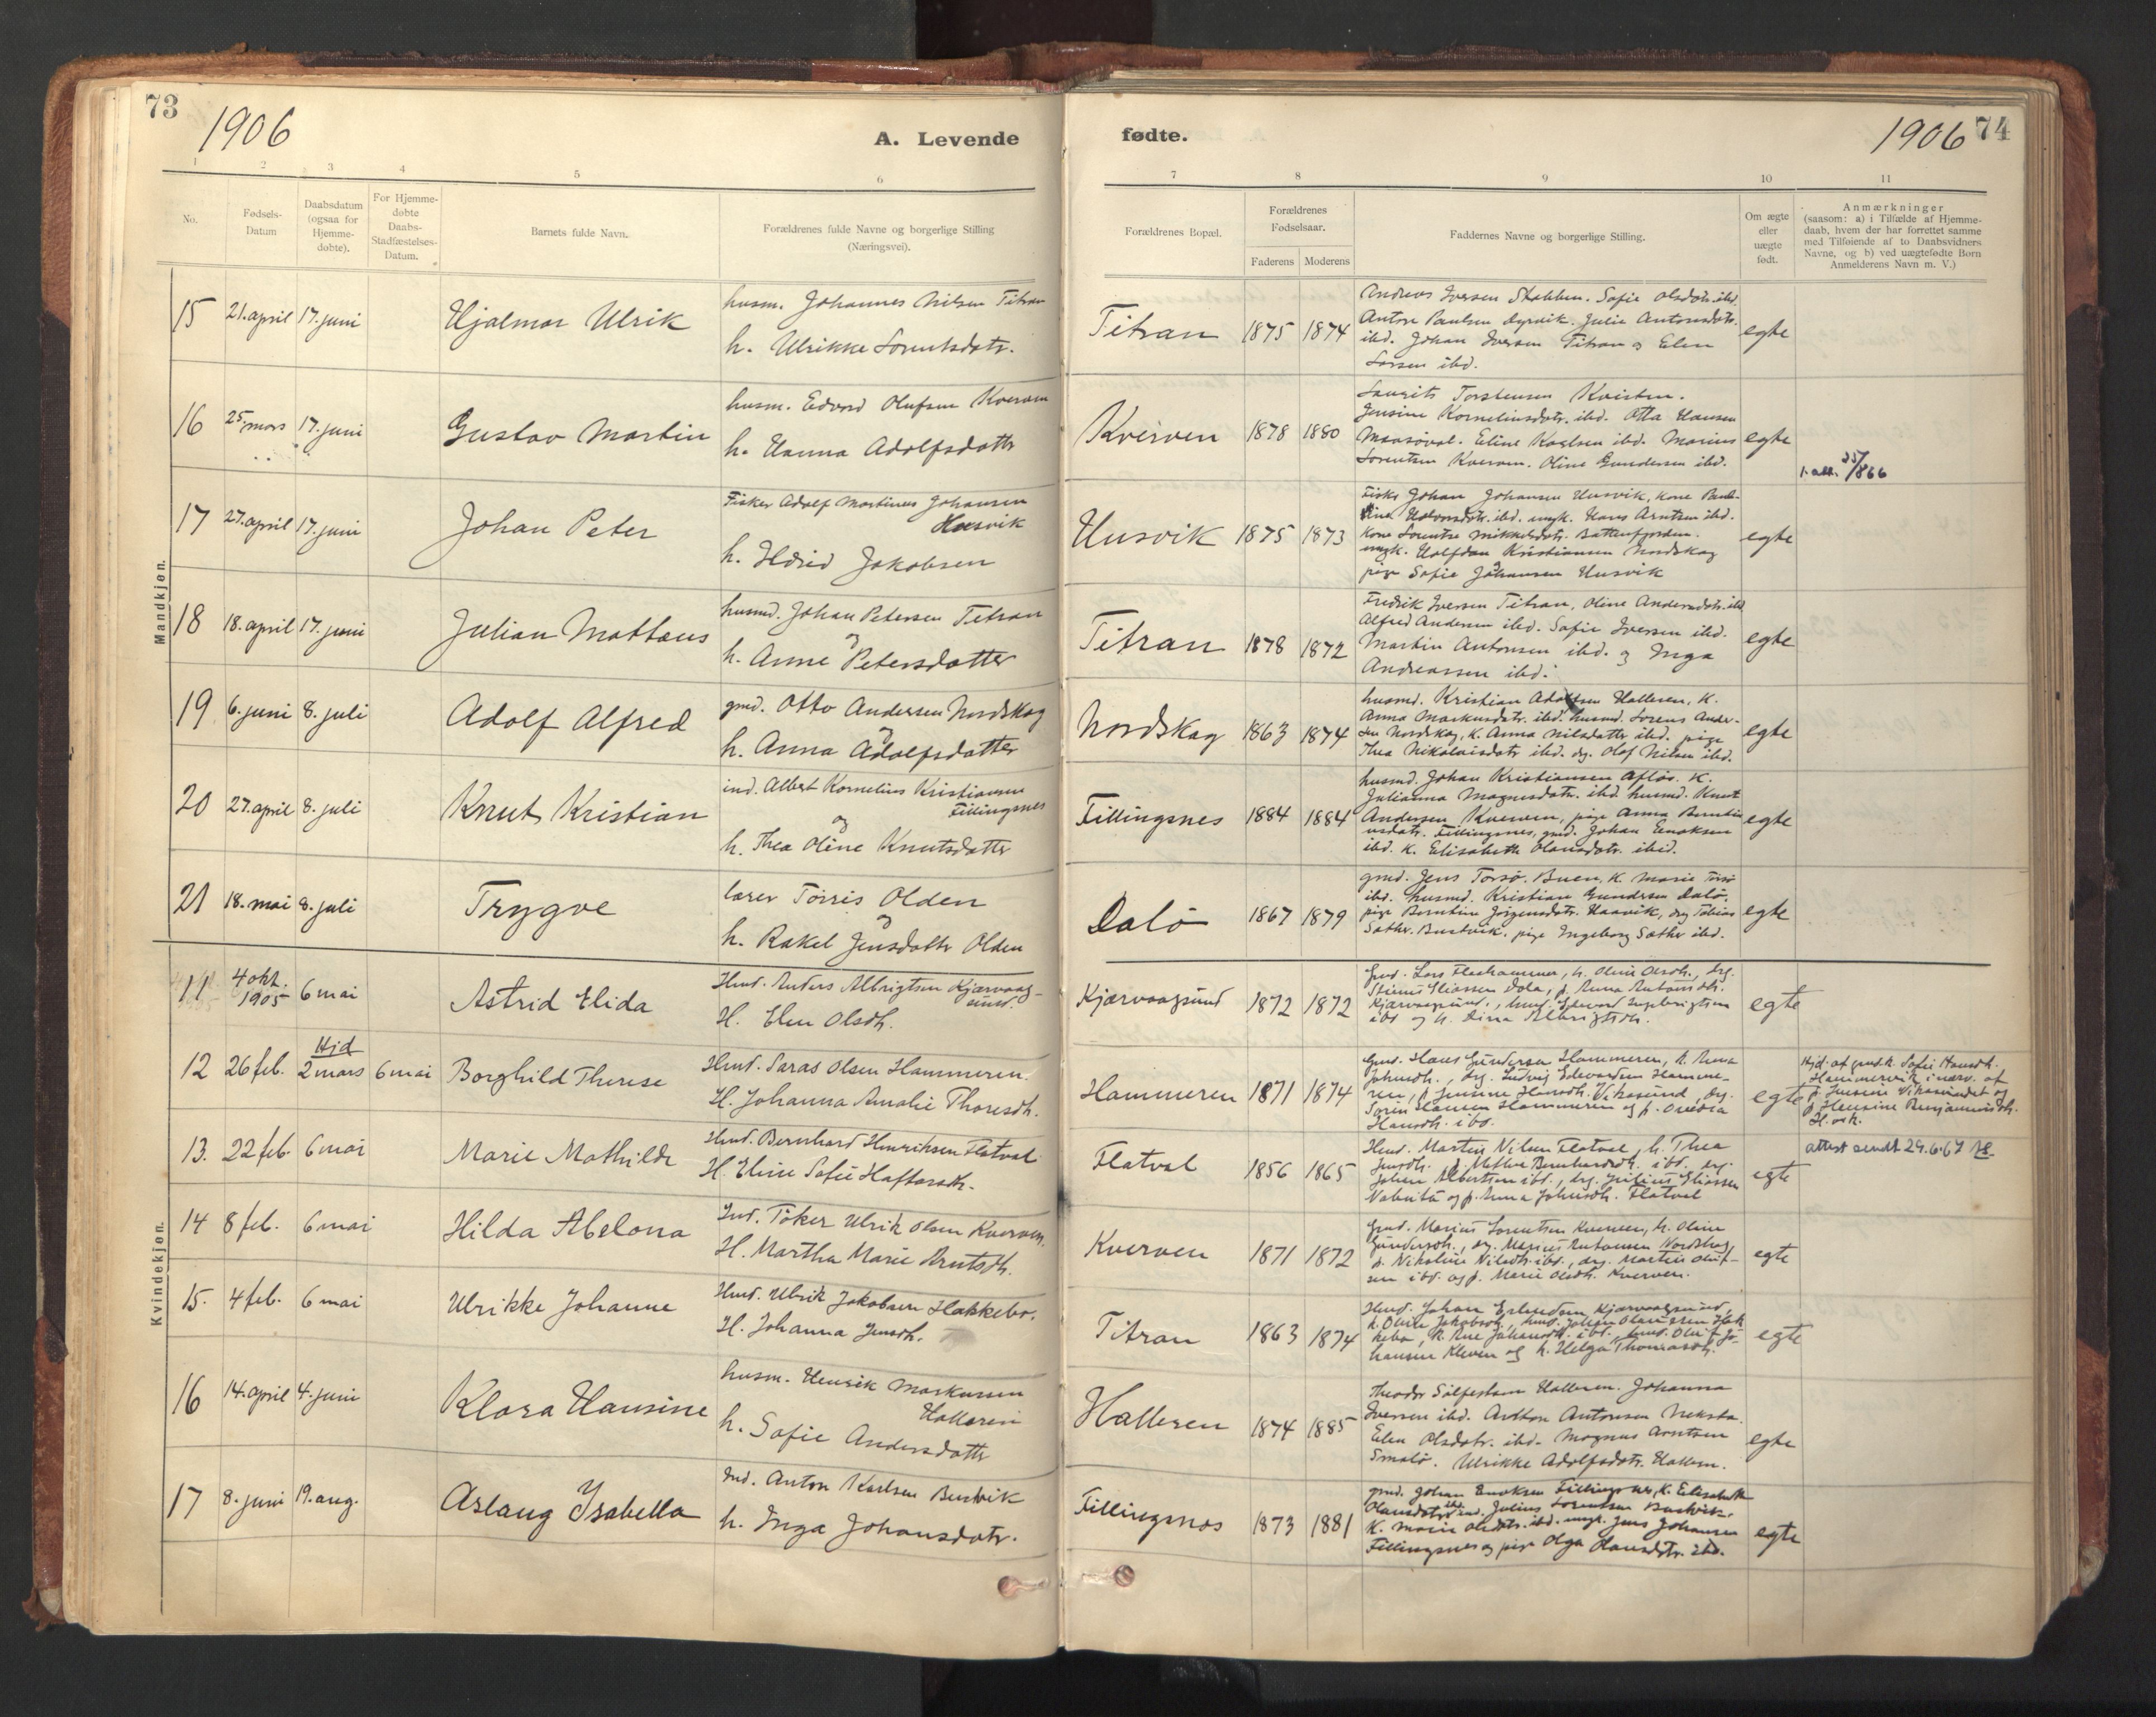 73
1906
A. Levende
fødte.
1906
74
1 2 3 4 5 6
7 8 9 10 11
No.
Fødsels-
Datum
Daabsdatum
(ogsaa for
Hjemme-
døbte).
For Hjemme-
døbte
Daabs-
Stadfæstelses-
Datum.
Barnets fulde Navn.
Forældrenes fulde Navne og borgerlige Stilling
(Næringsvei).
Forældrenes Bopæl.
Forældrenes
Fødselsaar.
Faderens Moderens
Faddernes Navne og borgerlige Stilling.
Om ægte
eller
uægte
født.
Anmærkninger
(saasom: a) i Tilfælde af Hjemme-
daab, hvem der har forrettet samme
med Tilføiende af to Daabsvidners
Navne, og b) ved uægtefødte Born
Anmelderens Navn m. V.)
Mandkjøn.
15 21. april 17. juni Hjalmar Ulrik
husm. Johannes Nilsen Titran
h. Ulrikke Lorentsdatr.
Titran 1875 1874
Andreas Iversen Stabben. Sofie Olsdatr. ibd.
Anton Paulsen Dyrvik. Julie Antonsdatr.
ibd. Johan Iversen Titran og Elen
Larsen ibd.
egte
16 25. mars 17. juni Gustav Martin
husm. Edvard Olufsen Kverven
h. Hanna Adolfsdattr
Kverven 1878 1880
Laurits Torstensen Kvisten.
Jensine Kornelinsdatr. ibd. Otto Hansen
Maasøval. Eline Karlsen ibd. Marius
Lorentsen Kverven. Oline Gundersen ibd.
egte
1. att. 25/8 66
17 27. april 17. juni Johan Peter
Fisker Adolf Martinus Johansen
Husvik
h. Ildrid Jakobsen
Husvik 1875 1873
Fisker Johan Johansen Husvik, kone Paul-
ine ibd. ungk. Hans Arntsen ibd.
kone Lorentse Mikkelsdatr. Battenfjorden.
ungk. Halfdan Kristiansen Nordskag
pige Sofie Johansen Husvik
egte
18 18. april 17. juni Julian Mattæus
husmd. Johan Petersen Titran
og
h. Anne Petersdatter
Titran 1878 1872
Fredrik Iversen Titran, Oline Andersdatr. ibd
Alfred Andersen ibd. Sofie Iversen ibd.
Martin Antonsen ibd. og Inga
Andreassen ibd.
egte
19 6. juni 8. juli Adolf Alfred
gmd. Otto Andersen Nordskag
og
h. Anna Adolfsdatter
Nordskag 1863 1874
husmd. Kristian Adolfsen Halleren, K.
Anna Markusdatr. ibd. husmd. Lorens Ander-
sen Nordskag, K. Anna Nilsdatter ibd. pige
Thea Nikolaisdatr ibd. dg. Olaf Nilsen ibd.
egte
20 27. april 8. juli Knut Kristian
ind. Albert Kornelius Kristiansen
Fillingsnes
og
h. Thea Oline Knutsdattr
Fillingsnes 1884 1884
husmd. Johan Kristiansen Afløs. K.
Julianna Magnusdatr. ibd. husmd. Knut
Andersen Kverven, pige Anna Berntin
usdatr. Fillingsnes, gmd. Johan Enoksen
ibd. K. Elisabeth Olausdatr. ibid.
egte
21 18. mai 8. juli Trygve
lærer Torris Olden
og
h. Rakel Jensdattr Olden
Dalø 1867 1879
gmd. Jens Torsø. Buen, K. Marie Torsø
ibd. husmd. Kristian Gundersen Dalø,
pige Berntine Jørgensdatr. Haavik, dg Tobias
Sæther. Bustvik, pige Ingeborg Sæther ibd.
egte
Kvindekjøn.
11 4 okt. 1905 6 mai Astrid Elida
Hmd. Anders Albrigtsen Kjærvaag-
sund.
H. Elen Olsdtr.
Kjærvaagsund 1872 1872
Gmd. Lars Fleshammer, h. Oline Olsdtr., dg.
Steinus Eliassen Dala, p. Anna Antonsdtr.
Kjærvaagsund., hmd. Edvard Ingebrigtsen
ibd og h. Dina Albrigtsdtr.
egte
12 26 feb. Hjd 2 mars 6 mai Borghild Therese
Hmd. Saras Olsen Hammeren.
H. Johanna Amalie Thoresdtr.
Hammeren 1871 1874
Gmd. Hans Gundersen Hammeren, h. Anna
Johnsdtr., dg. Ludvig Edvardsen Hamme-
ren, p. Jensine Hansdtr. Vikasund, dg.
Søren Hansen Hammeren og p. Ovedia
Hansdtr. ibd.
egte
Hjd. af gmdk. Sofie Hansdtr.
Hammervik i nærv. af
p. Jensine Vikasundet og
p. Hensine Benjaminsdtr.
H.vik.
13. 22 feb. 6 mai Marie Mathilde
Hmd. Bernhard Henriksen Flatval
H. Eline Sofie Haftorsdtr.
Flatval 1856 1865
Hmd. Martin Nilsen Flatval, h. Thea
Jensdtr. p. Methea Bernhardsdtr. ibd. dg.
Johan Albertsen ibd., dg. Julius Eliassen
Nabeita og p. Anna Johnsdtr. Flatval
egte
attest sendt 29.6.67
14 8 feb. 6 mai Hilda Abelona
Ind. Fisker Ulrik Olsen Kverven.
H. Martha Marie Arntsdtr.
Kverven 1871 1872
Gmd. Marius Lorentsen Kverven, h. Oline
Gundersdtr., dg. Marius Antonsen Nordskag,
p. Nikoline Nilsdtr. ibd., dg. Martin Oluf-
sen ibd. og p. Marie Olsdtr. Kverven.
egte
15. 4 feb. 6 mai Ulrikke Johanne
Hmd. Ulrik Jakobsen Hakkebo.
H. Johanna Jensdtr.
Titran 1863 1874
Hmd. Johan Erlendsen Kjærvaagsund,
h. Oline Jakobsdtr., hmd. Johan Olaus Hak
kebo, h. Ane Johansdtr. ibd., hmd. Oluf Jo-
hansen Kleven og h. Helga Thomasdtr.
egte
16 14. april 4. juni Klara Hansine
husm. Henrik Markussen
Halleren
h. Sofie Andersdattr
Halleren 1874 1885
Theodor Sølfestsen Halleren. Johanna
Iversen ibd. Arthur Antonsen Neksta.
Elen Olsdatr. ibd. Magnus Arntsen
Smalø. Ulrikke Adolfsdatr. Hallern.
egte
17 8. juni 19. aug. Aslaug Isabella
Ind. Anton Karlsen Bustvik
h. Inga Johansdatr.
Fillingsnæs 1873 1881
gmd. Johan Enoksen Fillingsnes, K. Elisabeth
Olausdatr ibd. ind. Julius Lorentsen Bustvik.
K. Marie Olsdatr. ibd. ungk. Jens Johansen
Fillingsnes og pige Olga Hansdatr. ibd.
egte